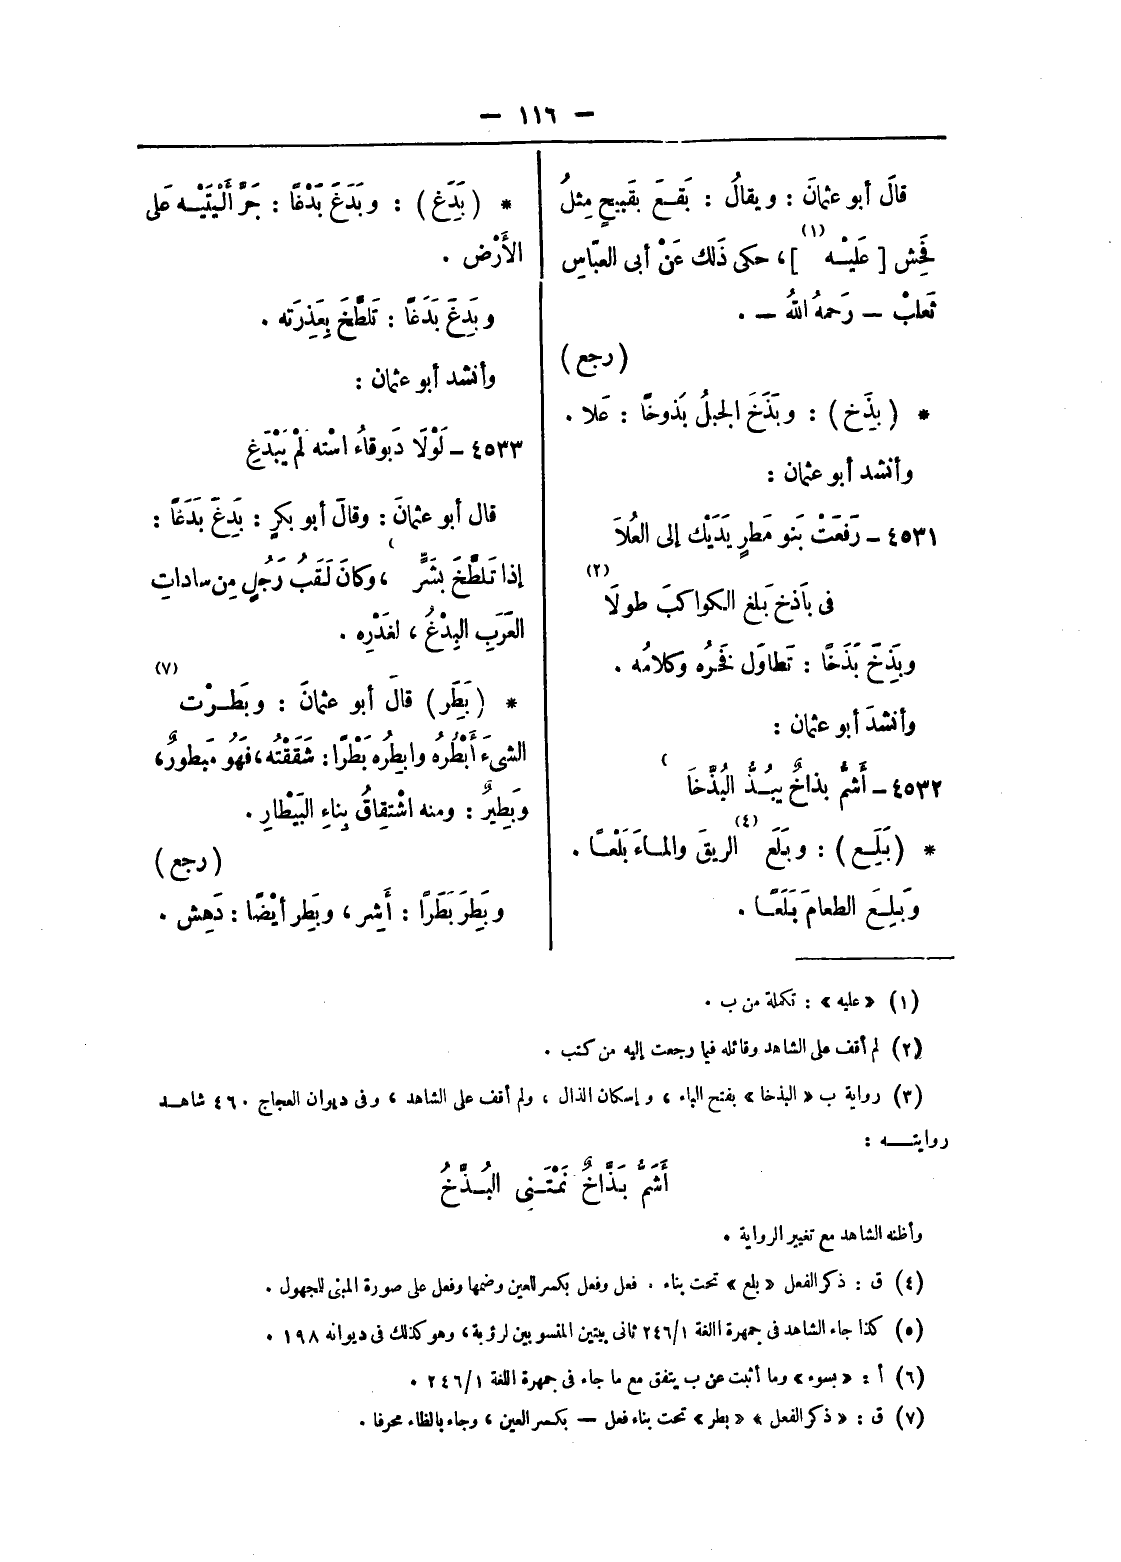 — ١١٦ —
قالَ أبو عثمانَ : ويقالُ : بَقعَ بقَبيحٍ مِثلُ
فَحِش [ عَلَيْه (١) ] ، حكى ذَلك عَنْ أبى العبّاسِ
ثَعلبْ — رَحمهُ اللهُ — .
(رجع)
* (بذِخ) : وبَذَخَ الجبلُ بُذوخًا : عَلا .
وأنشد أبو عثمان :
٤٥٣١ – رَفَعَتْ بَنو مَطرٍ يَدَيْك إلى العُلاَ
فى بَاذخ بَلغ الكواكبَ طولَا (٢)
وبَذِخَ بَذَخًا : تَطاوَل فَخرُه وكلامُه .
وأنشدَ أبو عثمان :
٤٥٣٢ – أَشَمُّ بذاخٌ يبُذُّ البُذَّخَا
* (بَلِع) : وبَلَعَ (٤) الريقَ والماءَ بَلْعًا .
وَبلِعَ الطعامَ بَلَعًا .
* (بَدِغ) : وبَدَغَ بَدْغًا : جَرَّ أَلْيَتَيْه عَلى
الأَرْض .
وبَدِغَ بَدَغًا : تَلطَّخَ بِعَذِرَته .
وأنشد أبو عثمان :
٤٥٣٣ – لَوْلَا دَبوقاءُ اسْته لمْ يَبْدَغِ
قال أبو عثمانَ : وقالَ أبو بكرٍ : بَدِغَ بَدَغًا :
إذا تَلطَّخَ بشَرٍّ ، وكانَ لَقَبُ رَجُلٍ مِن ساداتِ
العَرَبِ البِدْغُ ، لغَدْرِه .
* (بَطِر) قالَ أبو عثمانَ : وبَطرْت (٧)
الشىءَ أَبْطُرُه وابطِرُه بَطْرًا : شَقَقْتُه ، فهُو مَبطورٌ ،
وبَطيرٌ : ومنه اشْتِقاقُ بِناءِ البَيْطارِ .
(رجع)
وبَطِرَ بَطَرًا : أَشِر ، وبَطِر أيْضًا : دَهِش .
(١) « عليه » : تكملة من ب .
(٢) لم أقف على الشاهد وقائله فيما رجعت إليه من كتب .
(٣) رواية ب « البذخا » بفتح الباء ، وإسكان الذال ، ولم أقف على الشاهد ، وفى ديوان العجاج ٤٦٠ شاهد
روايته :
أَشَمُّ بَذَّاخٌ نَمَتْنِى البُذَّخُ
وأظنه الشاهد مع تغيير الرواية .
(٤) ق : ذكر الفعل « بلع » تحت بناء . فعل وفعل بكسر العين وضمها وفعل على صورة المبنى للجهول .
(٥) كذا جاء الشاهد فى جمهرة اللغة ٢٤٦/١ ثانى بيتين المنسوبين لرؤبة ، وهو كذلك فى ديوانه ١٩٨ .
(٦) أ : « بسوء » وما أثبت عن ب يتفق مع ما جاء فى جمهرة اللغة ٢٤٦/١ .
(٧) ق : « ذكر الفعل » « بطر » تحت بناء فعل — بكسر العين ، وجاء بالظاء محرفا .